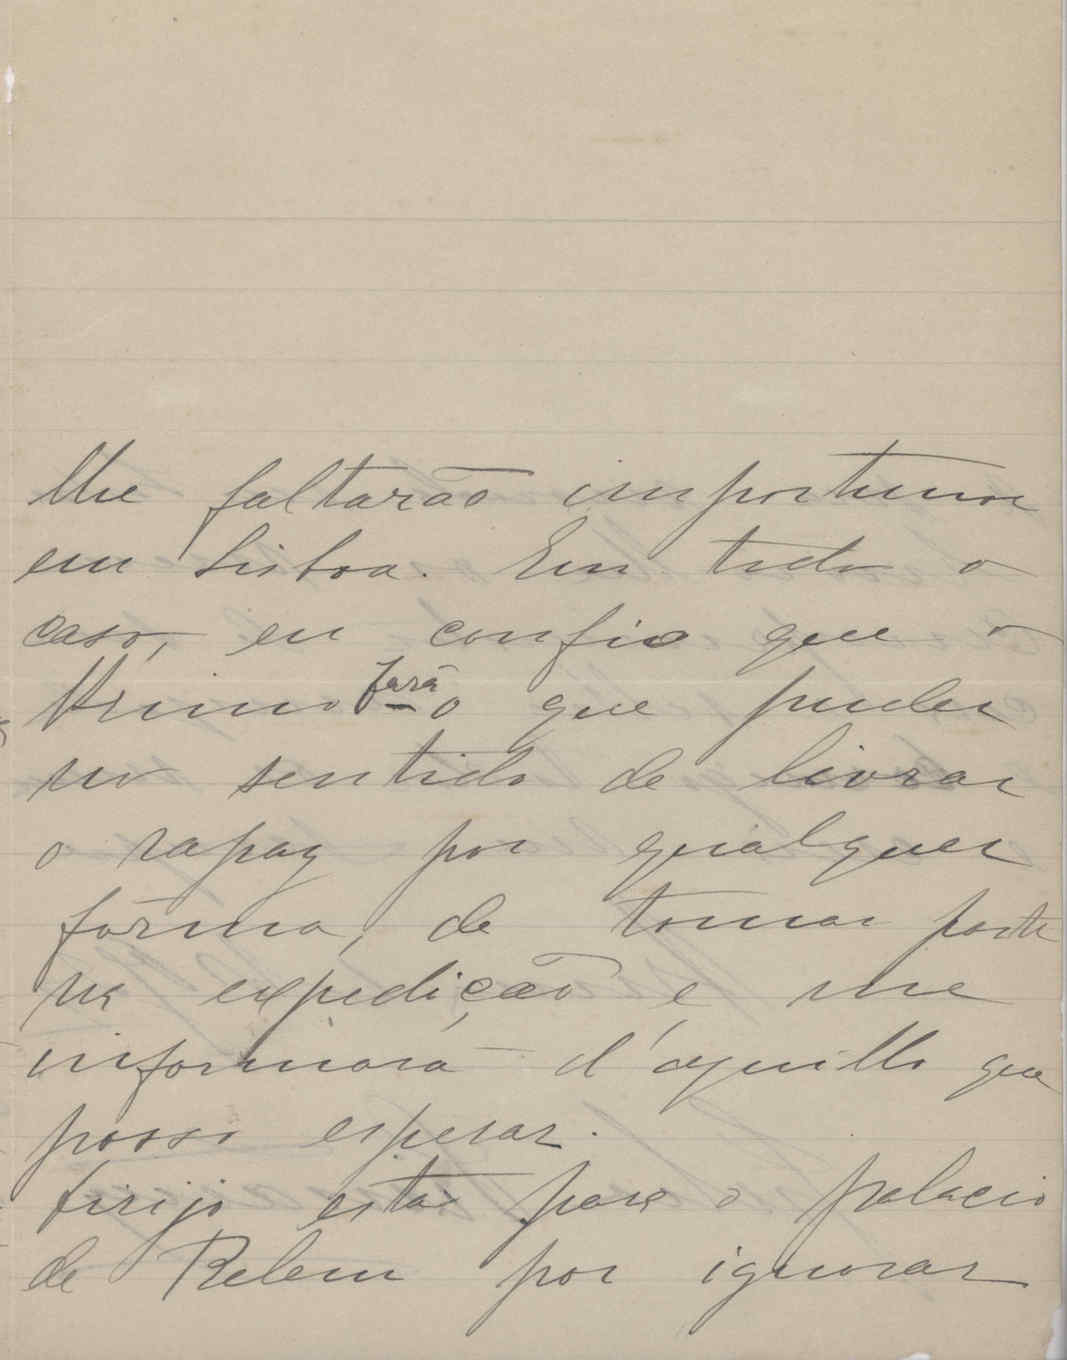 lhe faltarão importunos
em Lisboa. Em todo o
caso, eu confio que o
Primo fará o que puder
no sentido de livrar
o rapaz por qualquer
fórma, de tomar parte
na expedição e me
informará d'aquillo que
posso esperar.
Dirijo esta para o palacio
de Belem por ignorar